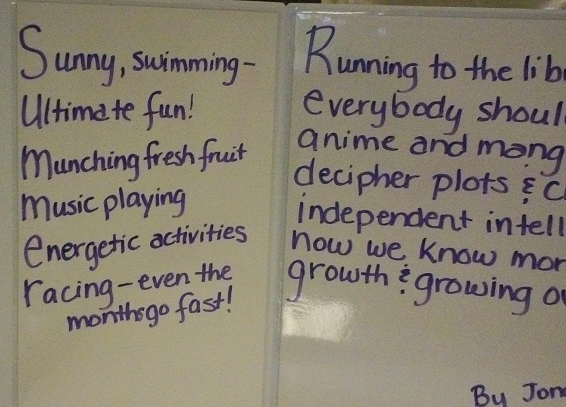 Sunny, swimming-
Ultimate fun!
Munching fresh fruit
Music playing
energetic activities
racing - even the
months go fast!
Running to the lib
everybody shoul
anime and mang
decipher plots & c
independent intell
now we know mor
growth & growing o
By Jon